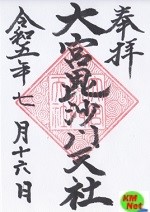 奉拝
大宮毘沙門天社
令和五年七月十六日
KM
Net